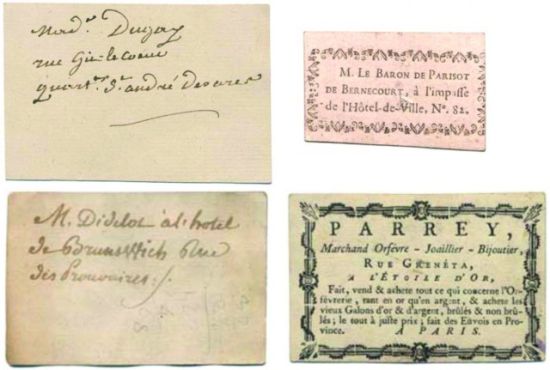 Mad.e
rue Git-le-coeur
quart.er St andré Desarts
M. LE BARON DE PARISOT
DE BERNECOURT, à l'impaſſe
de l'Hôtel-de-Ville, N°. 82.
M. Didelot à l'hotel
de Brunswich Rue
des Prouvaires ./.
PARREY,
Marchand Orfévre - Joaillier - Bijoutier,
RUE GRENÉTA,
A L'ÉTOILE D'OR,
Fait, vend & achete tout ce qui concerne l'Or-
févrerie, tant en or qu'en argent, & achete les
vieux Galons d'or & d'argent, brûlés & non brû-
lés; le tout à juſte prix; fait des Envois en Pro-
vince. A PARIS.